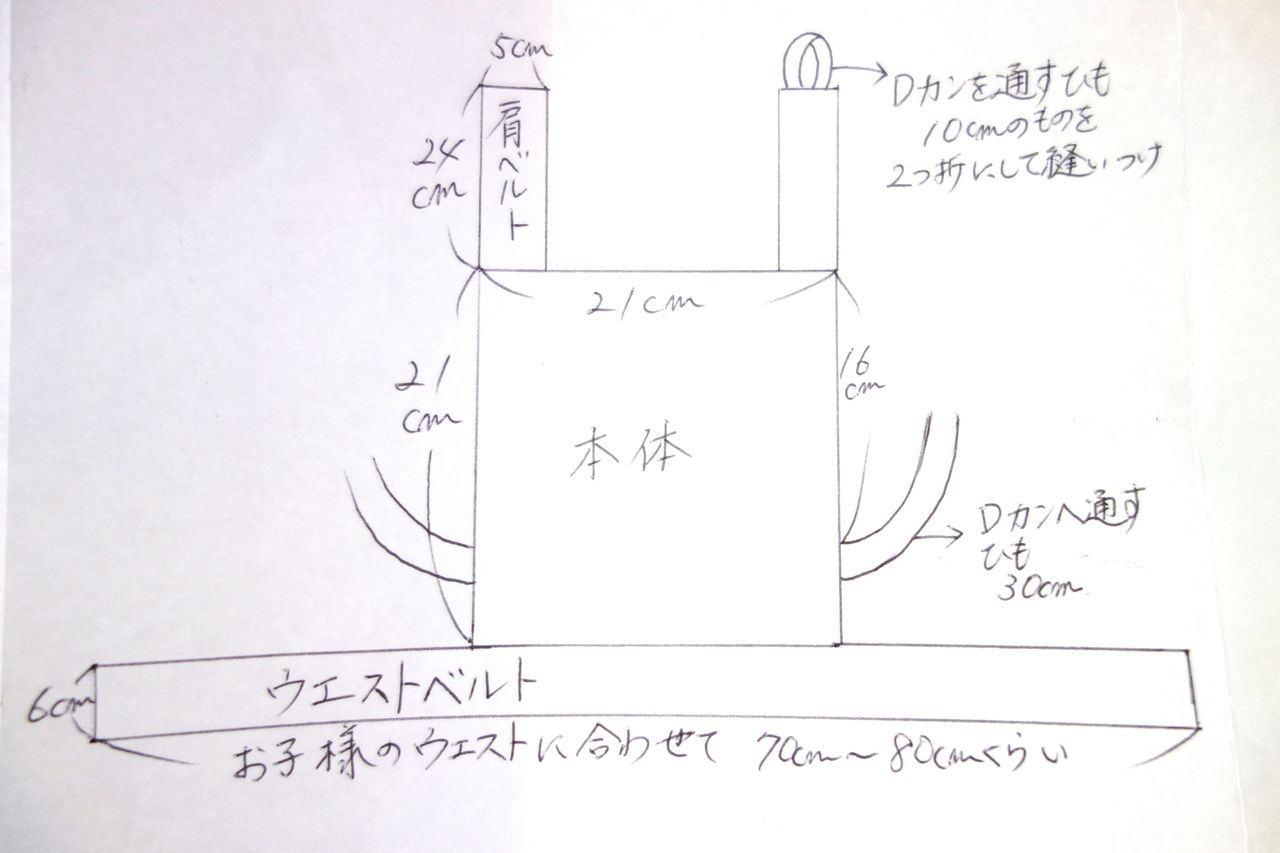 5cm
24
cm
肩ベルト
Dカンを通すひも
10cmのものを
2つ折にして縫いつけ
21cm
21
cm
16
cm
本体
Dカンへ通す
ひも
30cm
6cm
ウエストベルト
お子様のウェストに合わせて 70cm〜80cmくらい